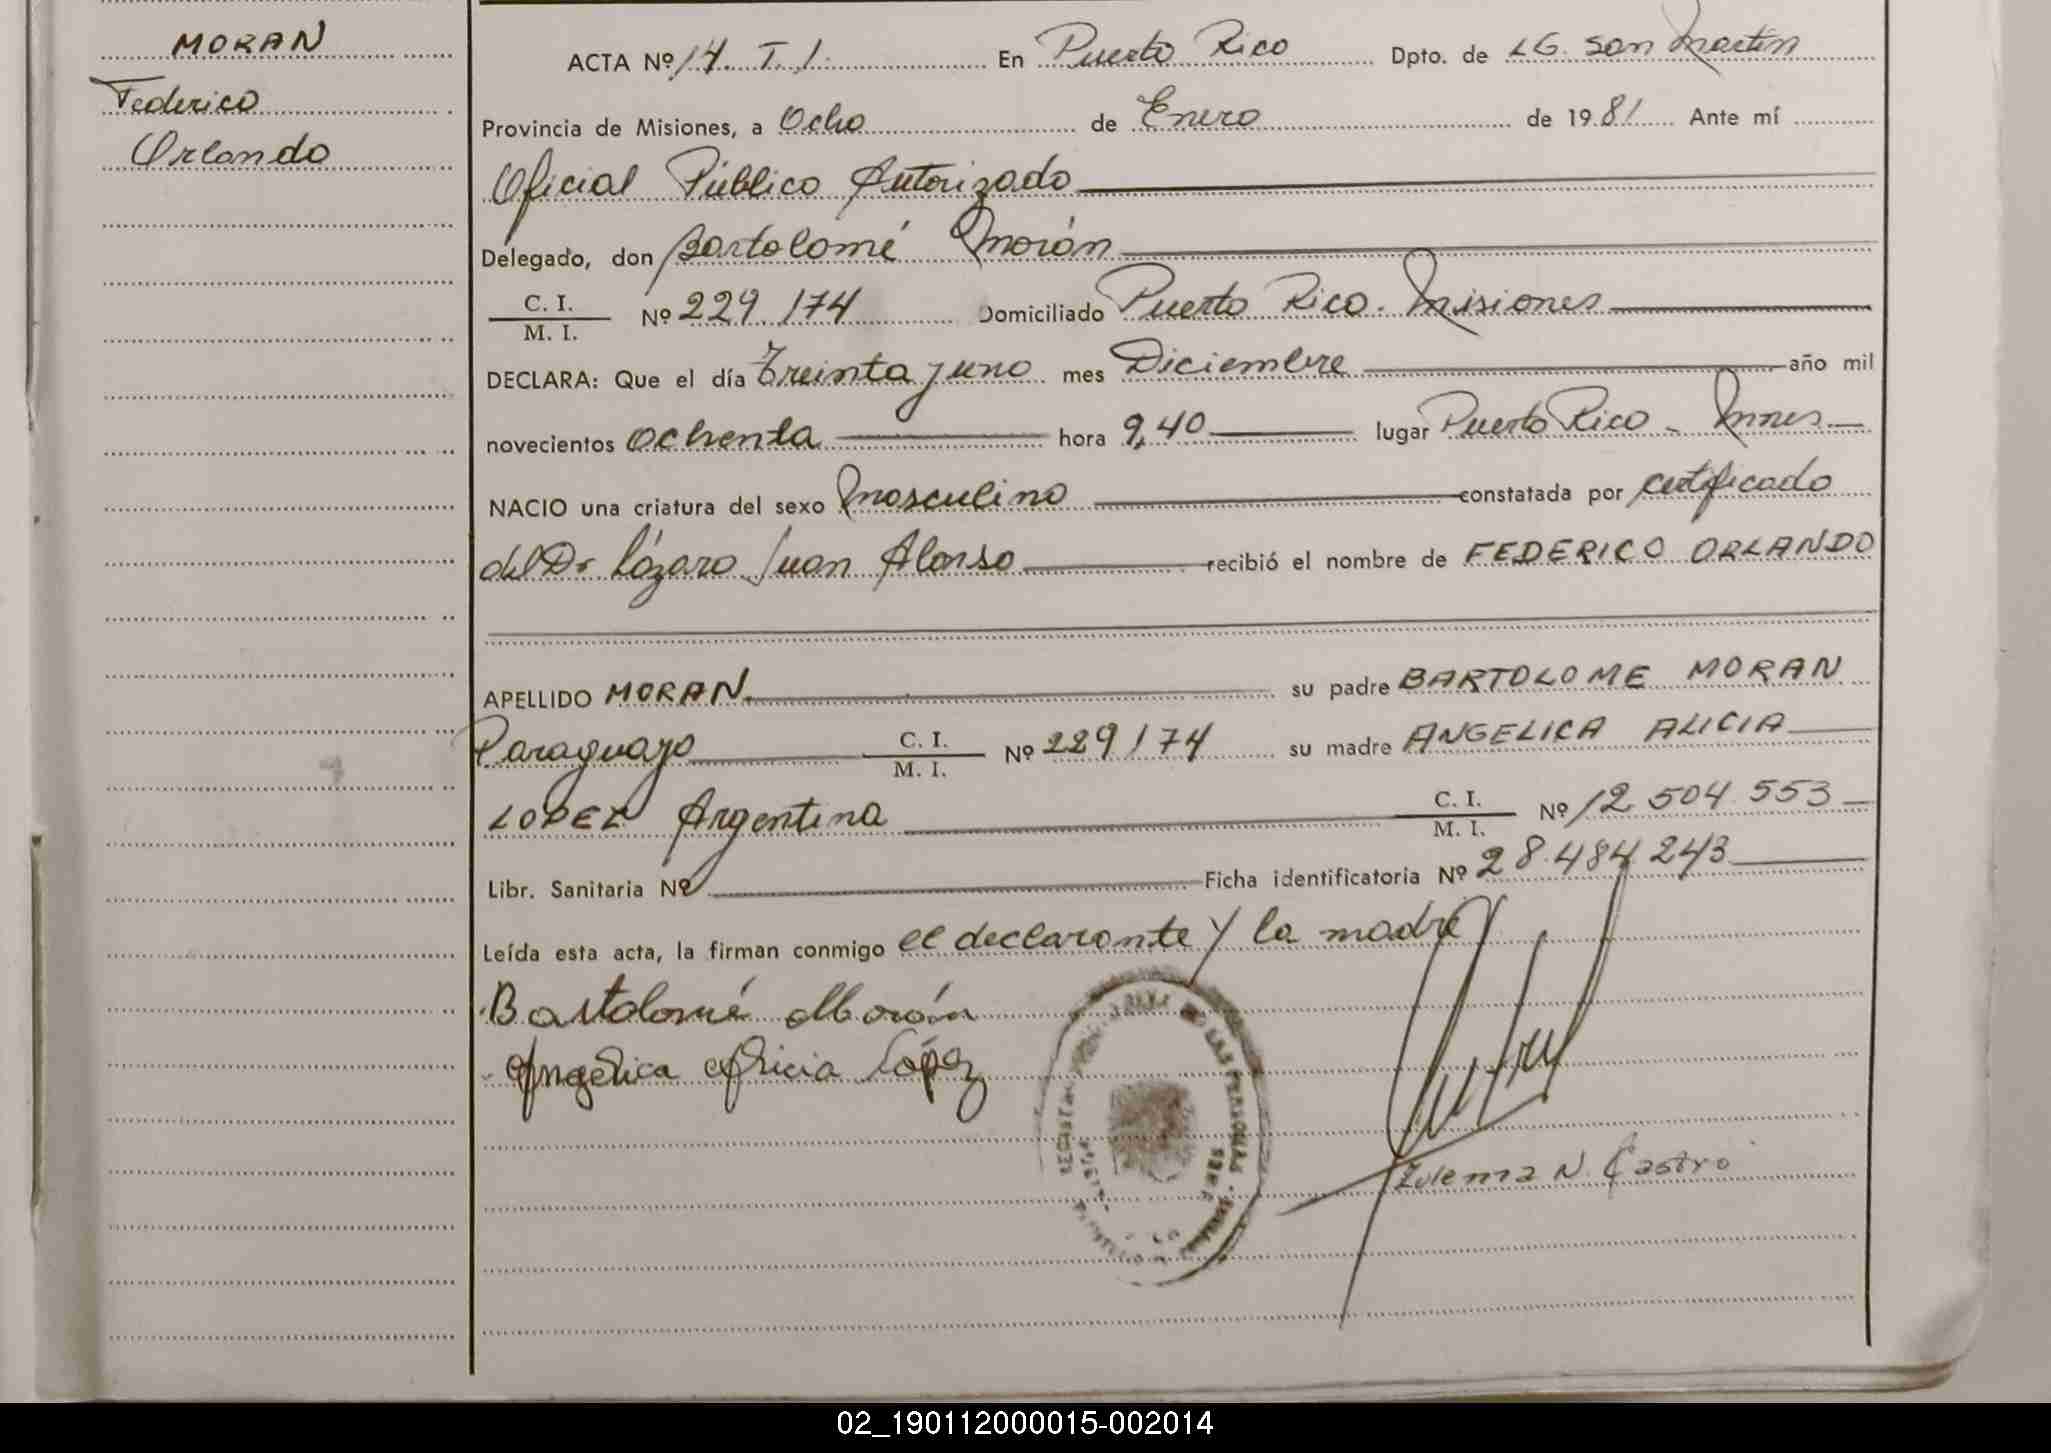 MORAN
Federico
Orlando
ACTA Nº 14. T. 1. En Puerto Rico Dpto. de LG. San Martin
Provincia de Misiones, a Ocho de Enero de 1981 Ante mí
Oficial Público Autorizado
Delegado, don Bartolomé Morán
C. I.
M. I. Nº 229174 Domiciliado Puerto Rico. Misiones
DECLARA: Que el día Treinta y uno mes Diciembre año mil
novecientos ochenta hora 9,40 lugar Puerto Rico - Mnes
NACIO una criatura del sexo masculino constatada por certificado
del Dr Lázaro Juan Alonso recibió el nombre de FEDERICO ORLANDO
APELLIDO MORAN su padre BARTOLOME MORAN
Paraguayo C. I.
M. I. Nº 229174 su madre ANGELICA ALICIA
LOPEZ Argentina C. I.
M. I. Nº 12 504 553
Libr. Sanitaria Nº Ficha identificatoria Nº 28.484 243
Leída esta acta, la firman conmigo el declarante y la madre
Bartolomé Morán
Angélica Alicia López
DE LAS PERSONAS
Zulema N. Castro
02_190112000015-002014